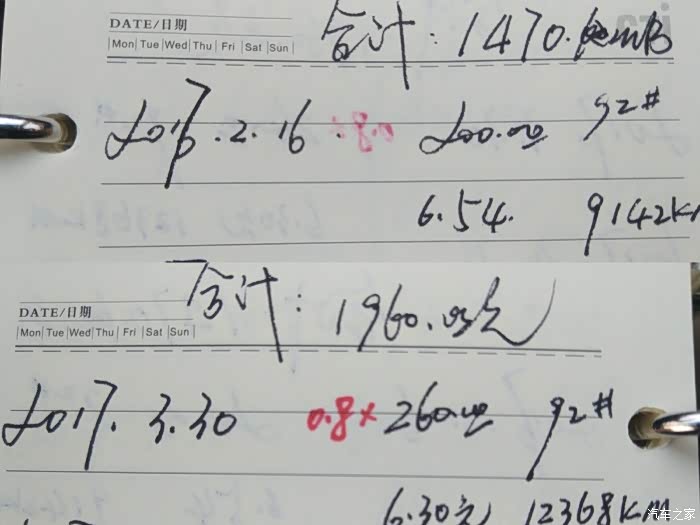 合计：1470.00RMB
DATE/日期
Mon Tue Wed Thu Fri Sat Sun
2017.2.16 200.00 92#
6.54. 9142KM
合计：1960.05元
DATE/日期
Mon Tue Wed Thu Fri Sat Sun
2017.3.30 0.8× 260.00 92#
6.30元 12368KM
汽车之家